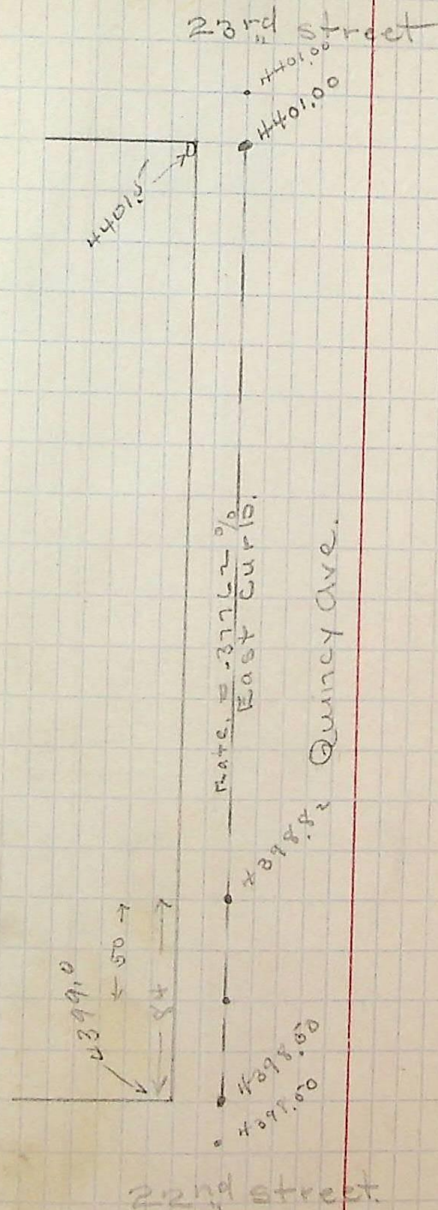 23rd Street
4401.00
4401.00
4401.5
Rate = .37762 %
East Curb.
Quincy Ave.
4398.82
50
84
4399.0
4398.50
4398.50
22nd Street